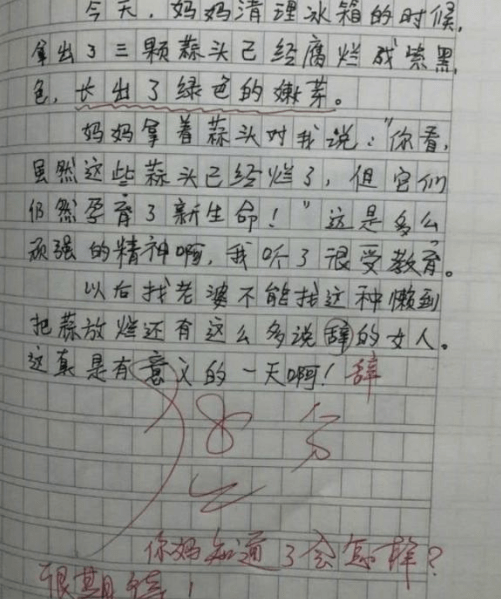 今天，妈妈清理冰箱的时候，
拿出了三颗蒜头已经腐烂成紫黑
色，长出了绿色的嫩芽。
妈妈拿着蒜头对我说："你看，
虽然这些蒜头已经烂了，但它们
仍然孕育了新生命！"这是多么
顽强的精神啊，我听了很受教育。
以后找老婆不能找这种懒到
把蒜放烂还有这么多说辞的女人。
这真是有意义的一天啊！辞
你妈知道了会怎样？
很期待！